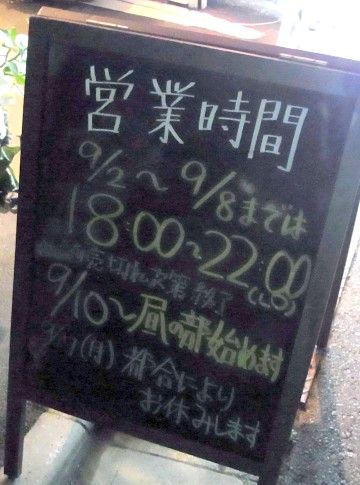 営業時間
9/2〜9/8までは
18:00〜22:00
(L.O)
売切れ次第終了
9/10〜昼の部始めます
(日)都合により
お休みします